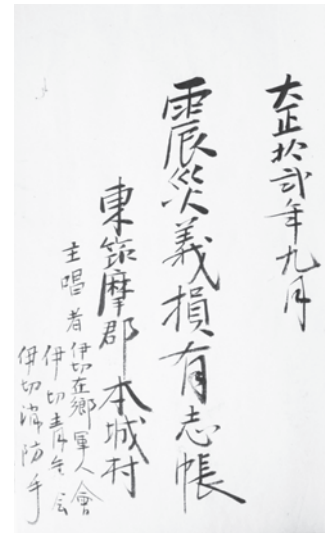 大正拾弐年九月
震災義損有志帳
東筑摩郡本城村
主唱者
伊切在郷軍人會
伊切青年会
伊切消防手